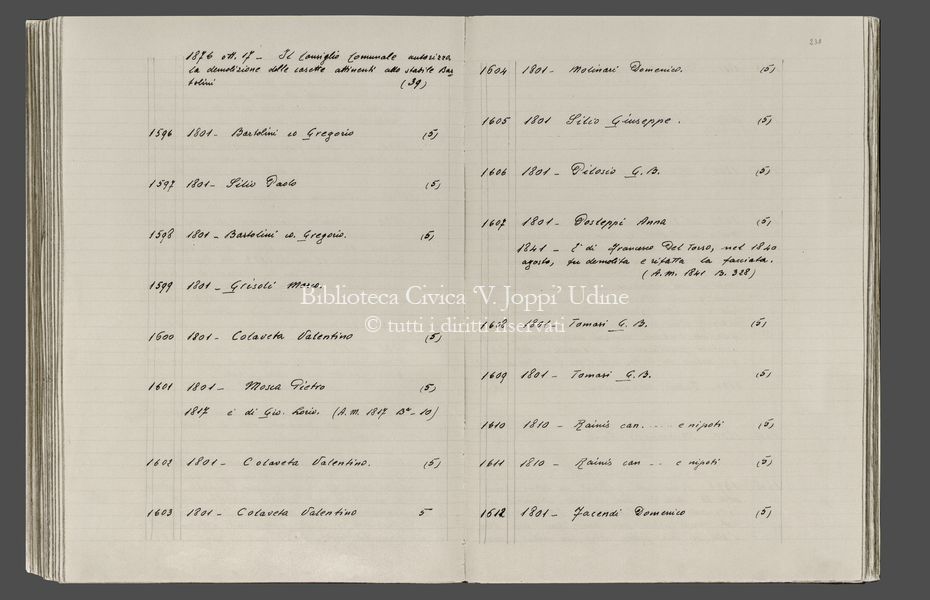 1876 ott. 17 - Il Consiglio Comunale autorizza
la demolizione delle casette attinenti allo stabile Bar
tolini (39)
1596 1801 - Bartolini co Gregorio (5)
1597 1801 - Silio Paolo (5)
1598 1801 - Bartolini co. Gregorio. (5)
1599 1801 - Grisoli Marco.
1600 1801 - Colaveta Valentino (5)
1601 1801 - Mosca Pietro (5)
1817 è di Gio. (A.M. 1817 Bª - 10)
1602 1801 - Colaveta Valentino. (5)
1603 1801 - Colaveta Valentino 5
238
1604 1801 - Molinari Domenico. (5)
1605 1801 Silio Giuseppe. (5)
1606 1801 - G. B. (5)
1607 1801 - Anna (5)
1841 - È di Francesco Del Torso, nel 1840
agosto, fu demolita e rifatta la facciata.
(A.M. 1841 B. 328)
1608 1801 - Tomasi G. B. (5)
1609 1801 - Tomasi G. B. (5)
1610 1810 - Rainis can. .... e nipoti (5)
1611 1810 - Rainis can ... e nipoti (5)
1612 1801 - Facendi Domenico (5)
Biblioteca Civica 'V. Joppi' Udine
© tutti i diritti riservati